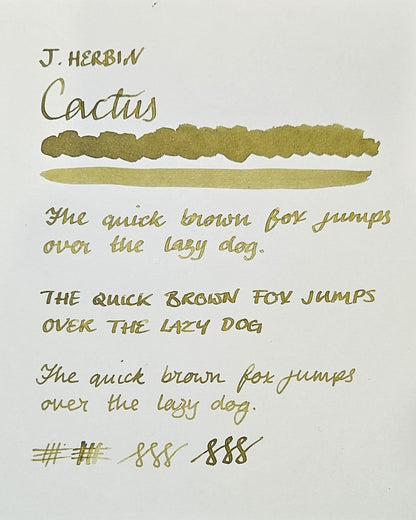 J. HERBIN
Cactus
The quick brown fox jumps
over the lazy dog.
THE QUICK BROWN FOX JUMPS
OVER THE LAZY DOG
The quick brown fox jumps
over the lazy dog.